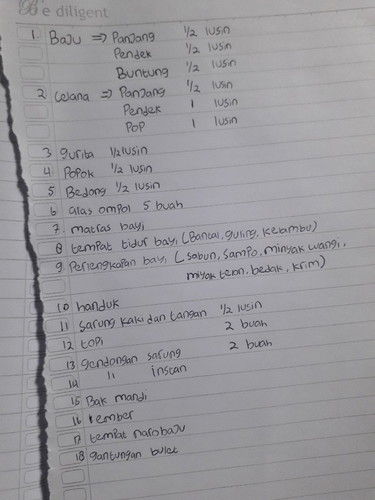 Be diligent
1 Baju => Panjang 1/2 lusin
Pendek 1/2 lusin
Buntung 1/2 lusin
2 celana => Panjang 1/2 lusin
Pendek 1 lusin
POP 1 lusin
3 gurita 1/2 lusin
4 Popok 1/2 lusin
5 Bedong 1/2 lusin
6 alas ompol 5 buah
7. matras bayi
8 tempat tidur bayi (Bantal, guling, kelambu)
9. Perlengkapan bayi (sabun, sampo, minyak wangi,
miyak telon, bedak, krim)
10 handuk
11 sarung kaki dan tangan 1/2 lusin
12 topi 2 buah
13 gendongan sarung 2 buah
14 " instan
15 Bak mandi
16 ember
17 tempat naro baju
18 gantungan bulet